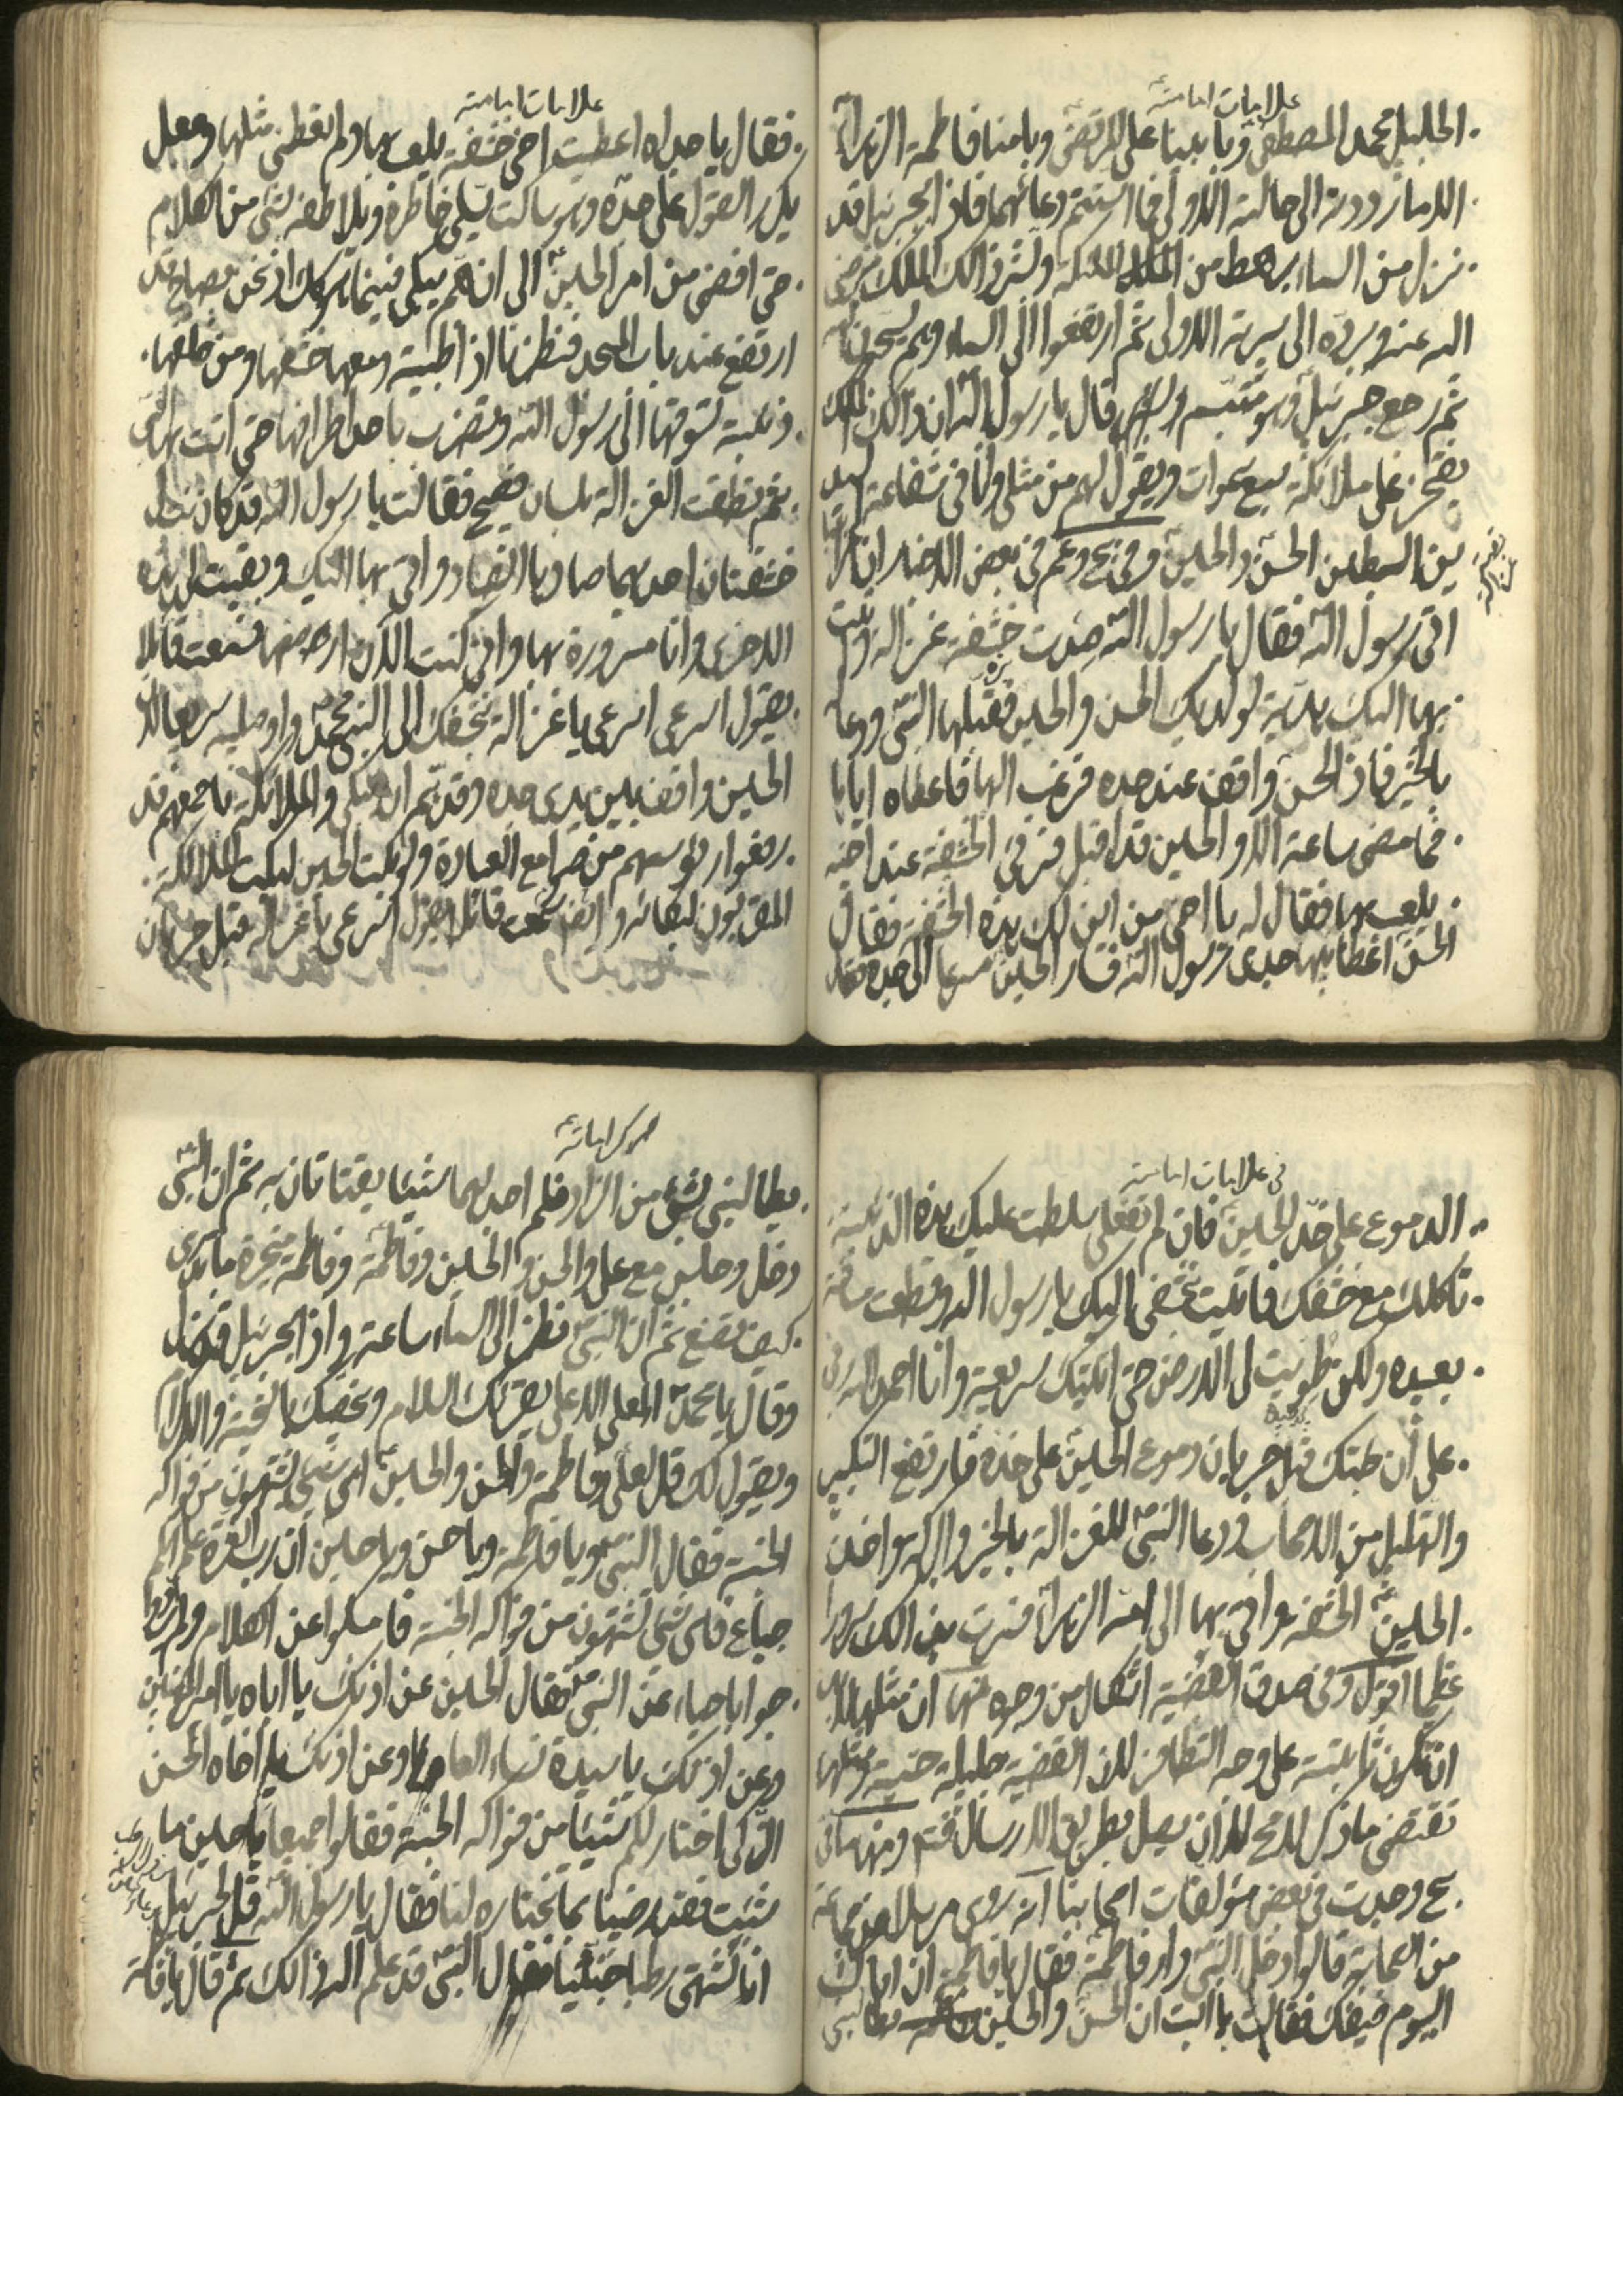 علامات امامته
الجليل محمد المصطفى وبابينا علي المرتضى وبامنا فاطمة الزهراء
الا ما رددته الى حالته الاولى فما استتم دعائهما فاذا بجبرئيل قد
نزل من السماء برهط من الملائكة وبشر ذالك الملك برضى
الله عنه وبرده الى سيرته الاولى ثم ارتفعوا الى السماء وهم يسبحون الله
ثم رجع جبرئيل وهو متبسم وقال يا رسول الله ان ذالك الملك
يفتخر على ملائكة سبع سموات ويقول لهم من مثلي وانا في شفاعة السيدين
السبطين الحسن والحسين وفي بح وعم في بعض الاخبار ان اعرابيا
اتى رسول الله فقال يا رسول الله صدت خشفة غزالة واتيت
بها اليك هدية لولديك الحسن والحسين فقبلها النبي ودعا له
بالخير فاذا الحسن واقف عند جده فرغب اليها فاعطاه اياها
فما مضى ساعة الا والحسين قد اقبل فرئى الخشفة عند اخيه
يلعب بها فقال له يا اخي من اين لك هذه الخشفة فقال
الحسن اعطانيها جدي رسول الله فسار الحسين مسرعا الى جده فقال
علامات امامته
فقال يا جداه اعطيت اخي خشفة يلعب بها ولم تعطني مثلها وجعل
يكرر القول على جده وهو ساكت يسلي خاطره ويلاطفه بشئ من الكلام
حتى افضى من امر الحسين الى ان هم يبكي فبينما هو كذلك اذ نحن بصياح قد
ارتفع عند باب المسجد فنظرنا اذا ظبية ومعها خشفها ومن خلفها
ذئبة تسوقها الى رسول الله وتضرب باحد اطرافها حتى اتت بها النبي
ثم نطقت الغزالة بلسان فصيح فقالت يا رسول الله قد كان لي
خشفتان احديهما صادها الصياد واتى بها اليك وبقيت لي هذه
الاخرى وانا مسرورة بها واني كنت الان ارضعها فسمعت قائلا
يقول اسرعي اسرعي يا غزالة بخشفك الى النبي محمد واوصليه سريعا لان
الحسين واقف بين يدي جده وقد هم ان يبكي والملائكة باجمعهم قد
رفعوا رؤسهم من صوامع العبادة ولو بكى الحسين لبكت الملائكة
المقربون لبكائه وايضا سمعت قائلا يقول اسرعي يا غزالة قبل جريان
في علامات امامته
الدموع على خد الحسين فان لم تفعلي سلطت عليك هذه الذئبة
تاكلك مع خشفك فاتيت بخشفي اليك يا رسول الله وقطعت مسافة
بعيدة ولكن طويت لي الارض حتى اتيتك سريعة وانا احمد الله ربي
على ان جئتك قبل جريان دموع الحسين على خده فارتفع التكبير
والتهليل من الاصحاب ودعا النبي للغزالة بالخير والبركة واخذ
الحسين الخشفة واتى بها الى امه الزهراء فسرت بذالك سرورا
عظيما اقول وفي صدق القضية اشكال من وجوه منها ان مثلها لا بد
ان تكون ثابتة على وجه التظافر لان القضية جليلة
تقتضي ما ذكر
بح وجدت في بعض مؤلفات اصحابنا انه روى مرسلا عن جماعة
من الصحابة قالوا دخل النبي دار فاطمة فقال يا فاطمة ان اباك
اليوم ضيفك فقالت يا ابت ان الحسن والحسين
يطالبني بشئ من الزاد فلم اجد لهما شيئا يقتاتان به ثم ان النبي
دخل وجلس مع علي والحسن والحسين وفاطمة وفاطمة متحيرة ما تدري
كيف تصنع ثم ان النبي نظر الى السماء ساعة واذا بجبرئيل قد نزل
وقال يا محمد العلي الاعلى يقرئك السلام ويخصك بالتحية والاكرام
ويقول لك قل لعلي وفاطمة والحسن والحسين اي شئ تشتهون من فواكه
الجنة فقال النبي يا علي ويا فاطمة ويا حسن ويا حسين ان رب العزة علم انكم
جياع فاي شئ تشتهون من فواكه الجنة فامسكوا عن الكلام ولم يردوا
جوابا حياء من النبي فقال الحسين عن اذنك يا اباه يا امير المؤمنين
وعن اذنك يا سيدة نساء العالمين وعن اذنك يا اخاه الحسن
الزكي اختار لكم شيئا من فواكه الجنة فقالوا جميعا يا حسين ما
شئت فقد رضينا بما تختاره لنا فقال يا رسول الله قل لجبرئيل
انا نشتهي رطبا جنيا فقال النبي قد علم الله ذالك ثم قال يا فاطمة